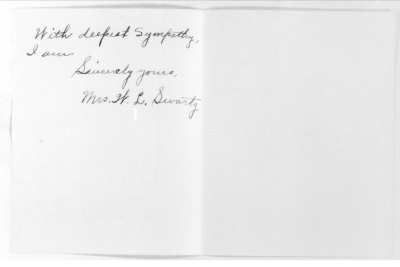 With deepest Sympathy,
I am
Sincerely yours,
Mrs. H. L. Swartz